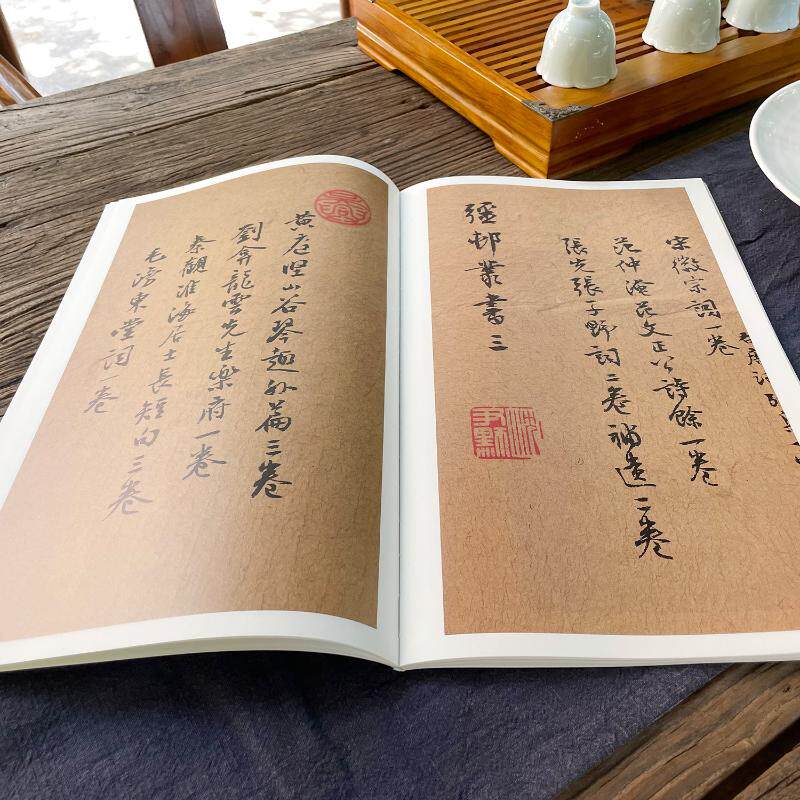 宋徽宗詞一卷
范仲淹范文正公詩餘一卷
張先張子野詞二卷補遺二卷
彊邨叢書三
沈尹默
黃庭堅山谷琴趣外篇三卷
劉弇龍雲先生樂府一卷
秦觀淮海居士長短句三卷
毛滂東堂詞一卷